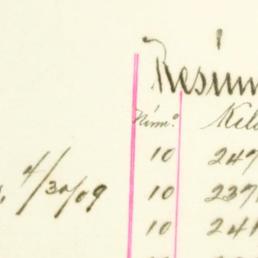 Resum
Núm.º Kil
10 247
4/30/09 10 237
10 241